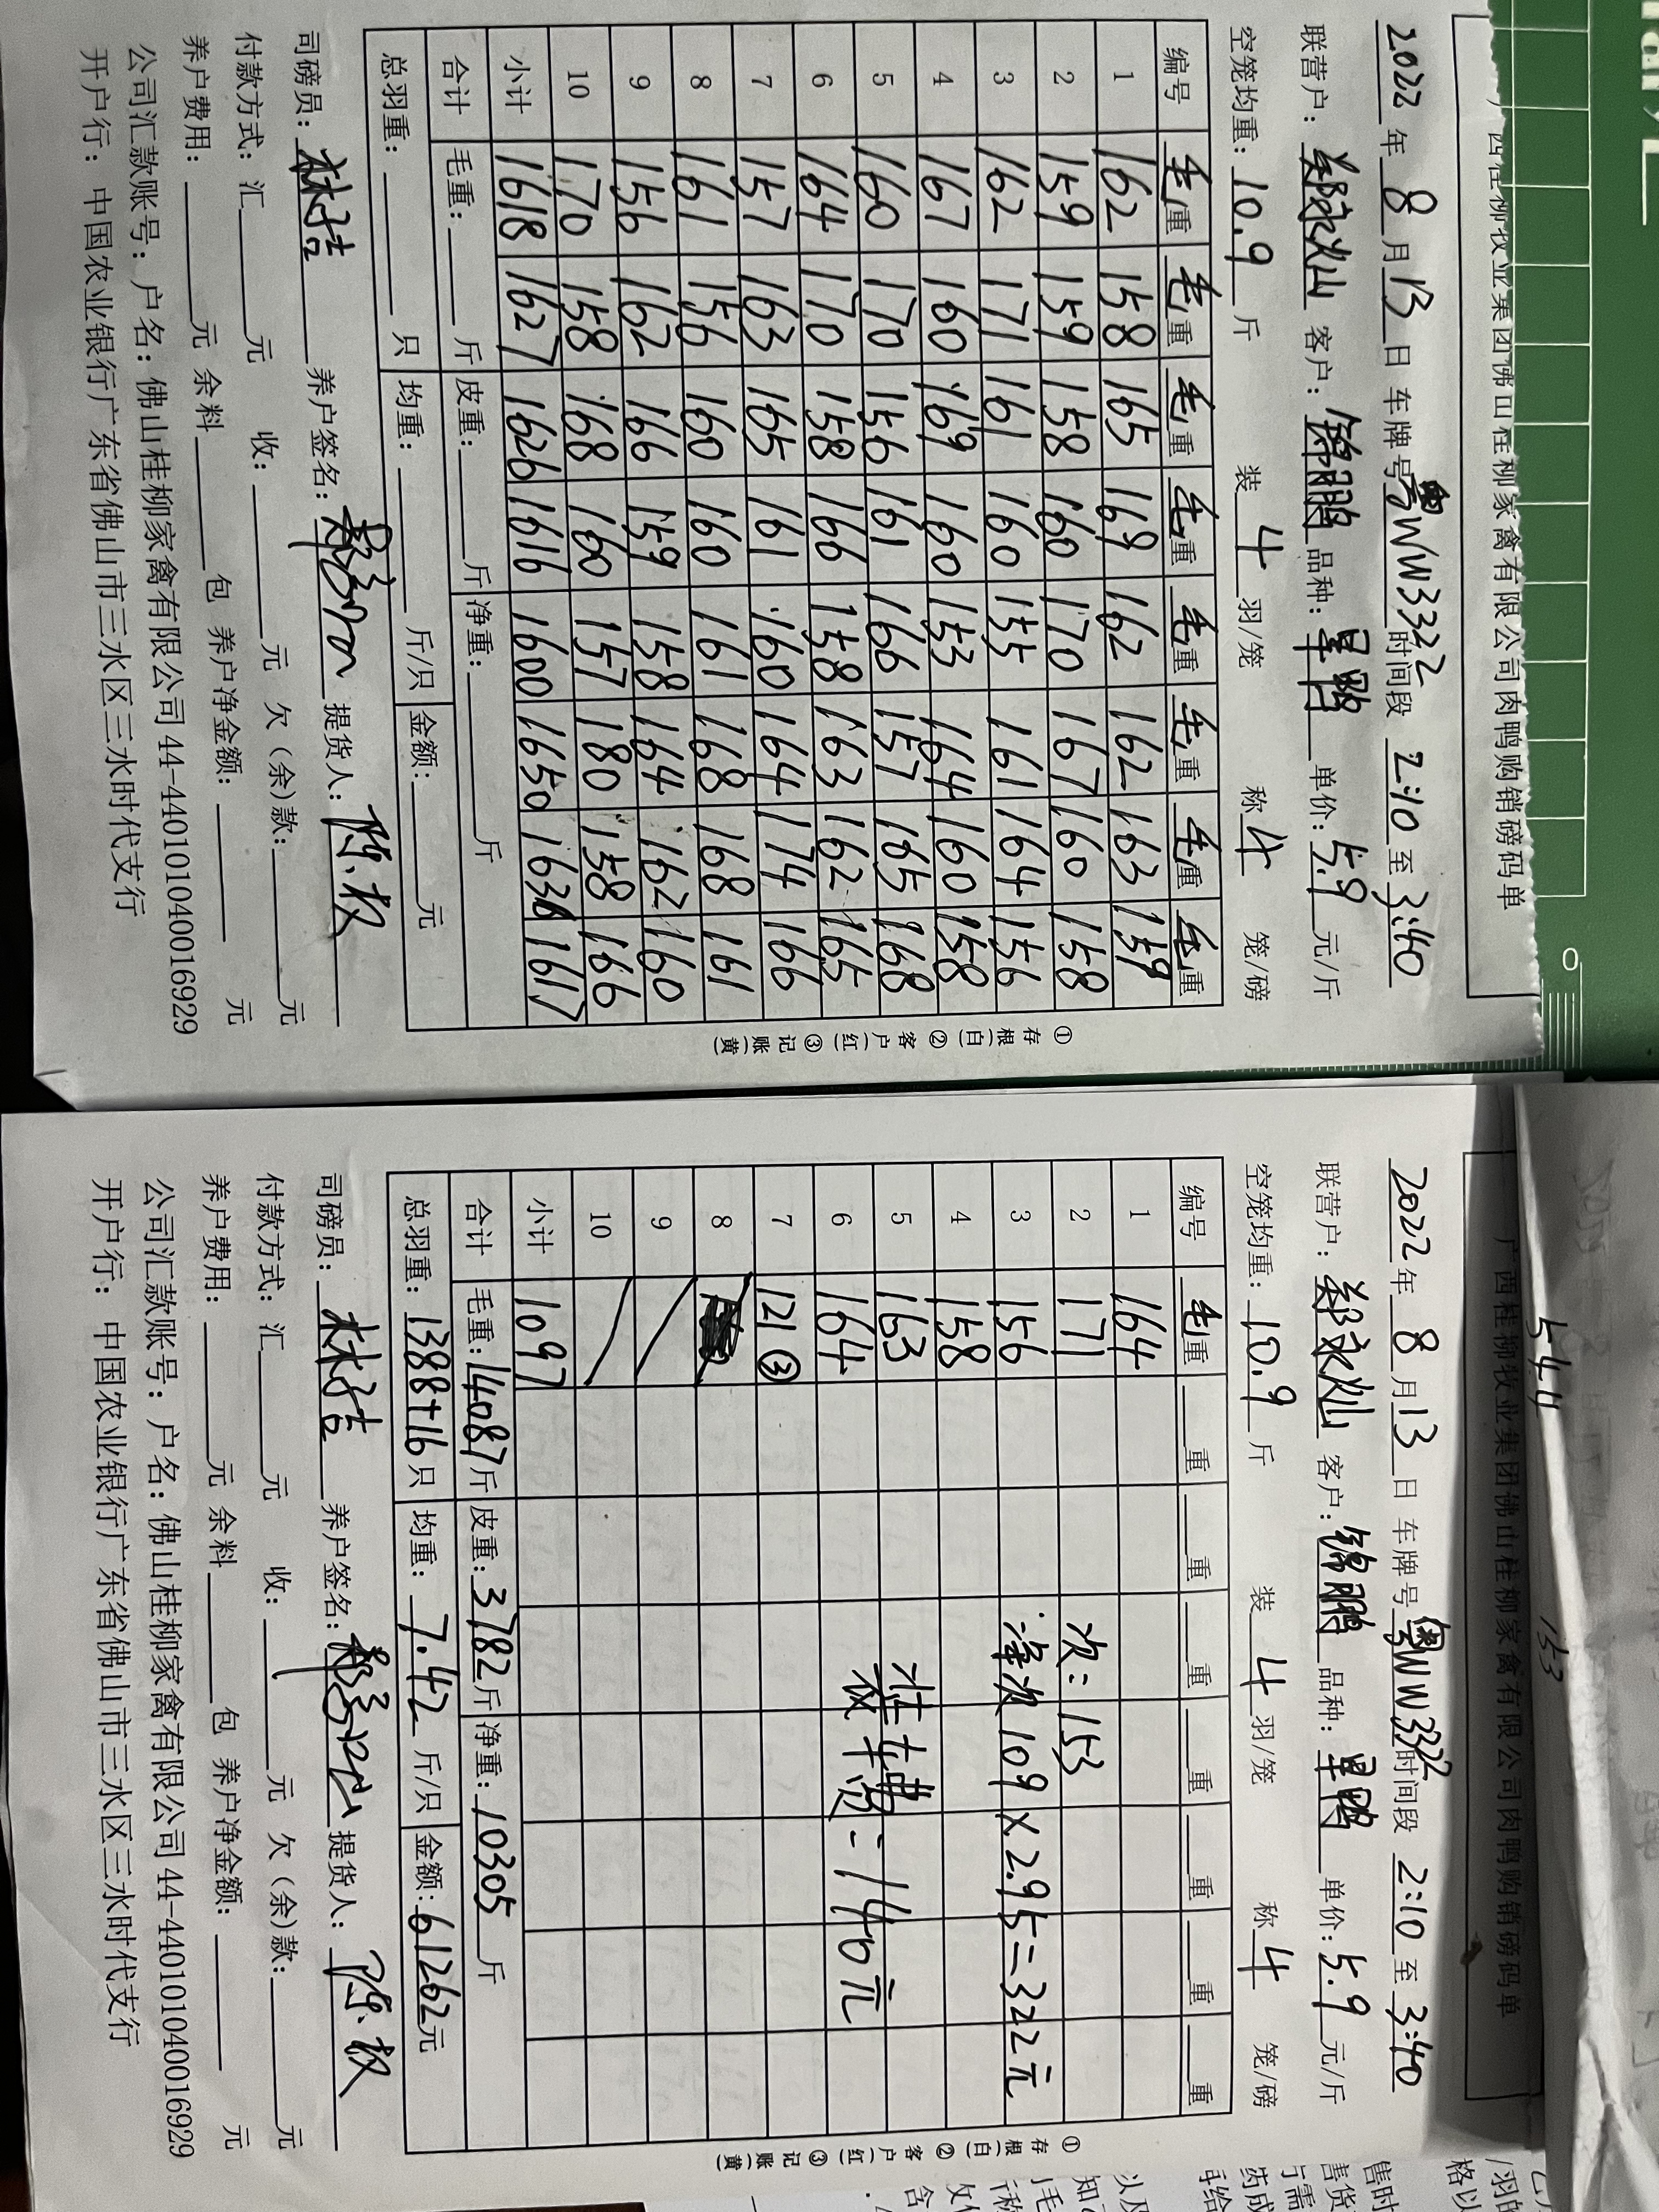 广西桂柳牧业集团佛山桂柳家禽有限公司肉鸭购销磅码单
2022 年 8 月 13 日 车牌号 粤WW3322 时间段 2:10 至 3:40
联营户: 郑永灿 客户: 锦鹏 品种: 单价: 5.9 元/斤
空笼均重: 10.9 斤 装 4 羽/笼 称 4 笼/磅
编号 毛重 毛重 毛重 毛重 毛重 毛重 毛重 毛重
1 162 158 165 169 162 162 163 159
2 159 159 158 160 170 167 160 158
3 162 171 161 160 155 161 164 156
4 167 160 169 160 153 164 160 158
5 160 170 156 161 166 157 165 168
6 164 170 158 166 158 163 162 165
7 157 163 165 161 160 164 174 166
8 161 156 160 160 161 168 168 161
9 156 162 166 159 158 164 162 160
10 170 158 168 160 157 180 158 166
小计 1618 1627 1626 1616 1600 1650 1636 1617
合计 毛重: 斤 皮重: 斤 净重: 斤
总羽重: 只 均重: 斤/只 金额: 元
司磅员: 林洁 养户签名: 提货人: 陈权
付款方式: 汇 元 收: 元 欠(余)款: 元
养户费用: 元 余料 包 养户净金额: 元
公司汇款账号: 户名: 佛山桂柳家禽有限公司 44-440101040016929
开户行: 中国农业银行广东省佛山市三水区三水时代支行
①存根(白) ②客户(红) ③记账(黄)
544
153
广西桂柳牧业集团佛山桂柳家禽有限公司肉鸭购销磅码单
2022 年 8 月 13 日 车牌号 粤WW3322 时间段 2:10 至 3:40
联营户: 郑永灿 客户: 锦鹏 品种: 单价: 5.9 元/斤
空笼均重: 10.9 斤 装 4 羽/笼 称 4 笼/磅
编号 毛重 重 重 重 重 重 重 重
1 164
2 171 次: 153
3 156 净次 109×2.95=322元
4 158
5 163 壮佛
6 164 装车费: 140元
7 121 ③
8
9
10
小计 1097
合计 毛重: 14087 斤 皮重: 3782 斤 净重: 10305 斤
总羽重: 1388+16 只 均重: 7.42 斤/只 金额: 61262 元
司磅员: 林洁 养户签名: 提货人: 陈权
付款方式: 汇 元 收: 元 欠(余)款: 元
养户费用: 元 余料 包 养户净金额: 元
公司汇款账号: 户名: 佛山桂柳家禽有限公司 44-440101040016929
开户行: 中国农业银行广东省佛山市三水区三水时代支行
①存根(白) ②客户(红) ③记账(黄)